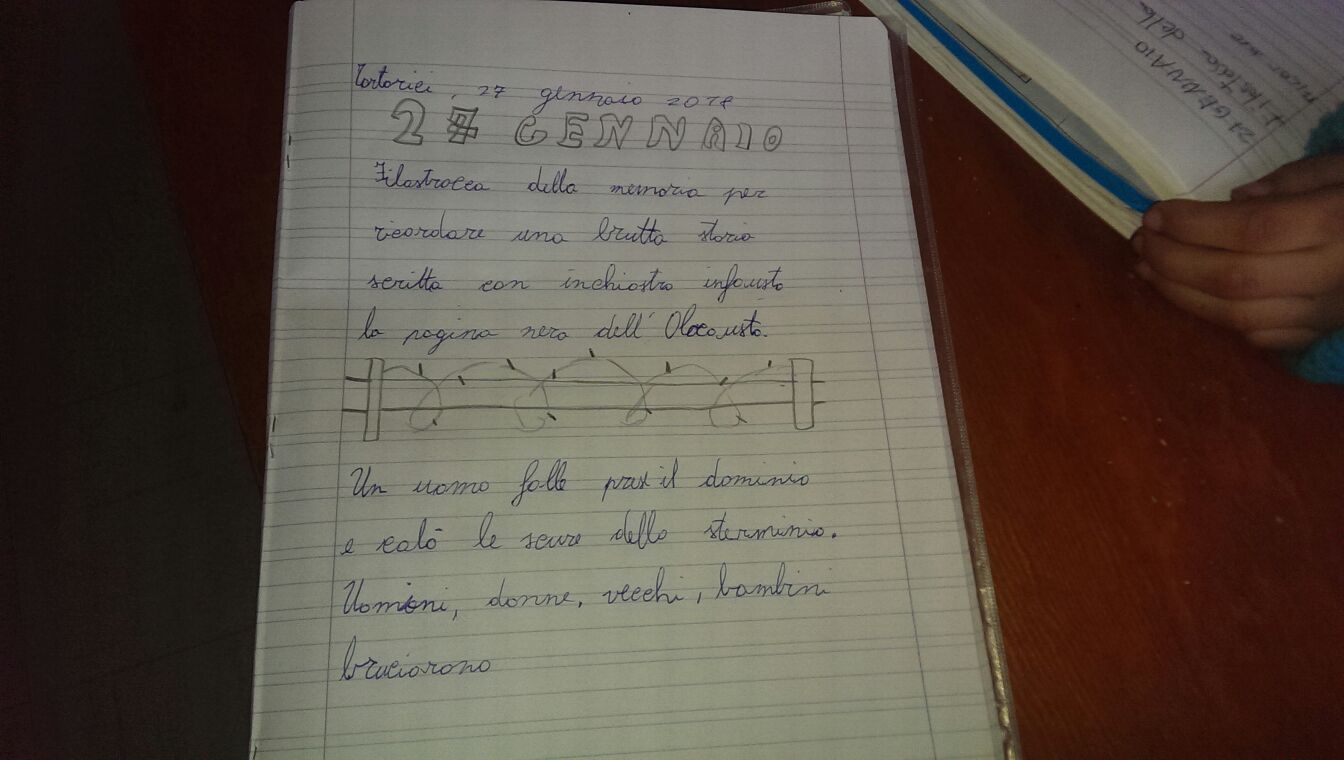 Tortorici, 27 gennaio 2018
27 GENNAIO
Filastrocca della memoria per
ricordare una brutta storia
scritta con inchiostro infausto
la pagina nera dell'Olocausto.
Un uomo folle prese il dominio
e calò le scure dello sterminio.
Uomini, donne, vecchi, bambini
bruciarono
27 GENNAIO
della